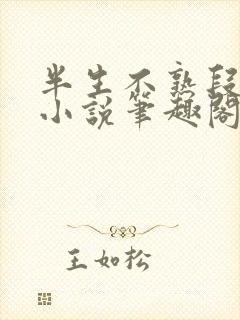 半生不熟段
小說筆趣閣
王如松